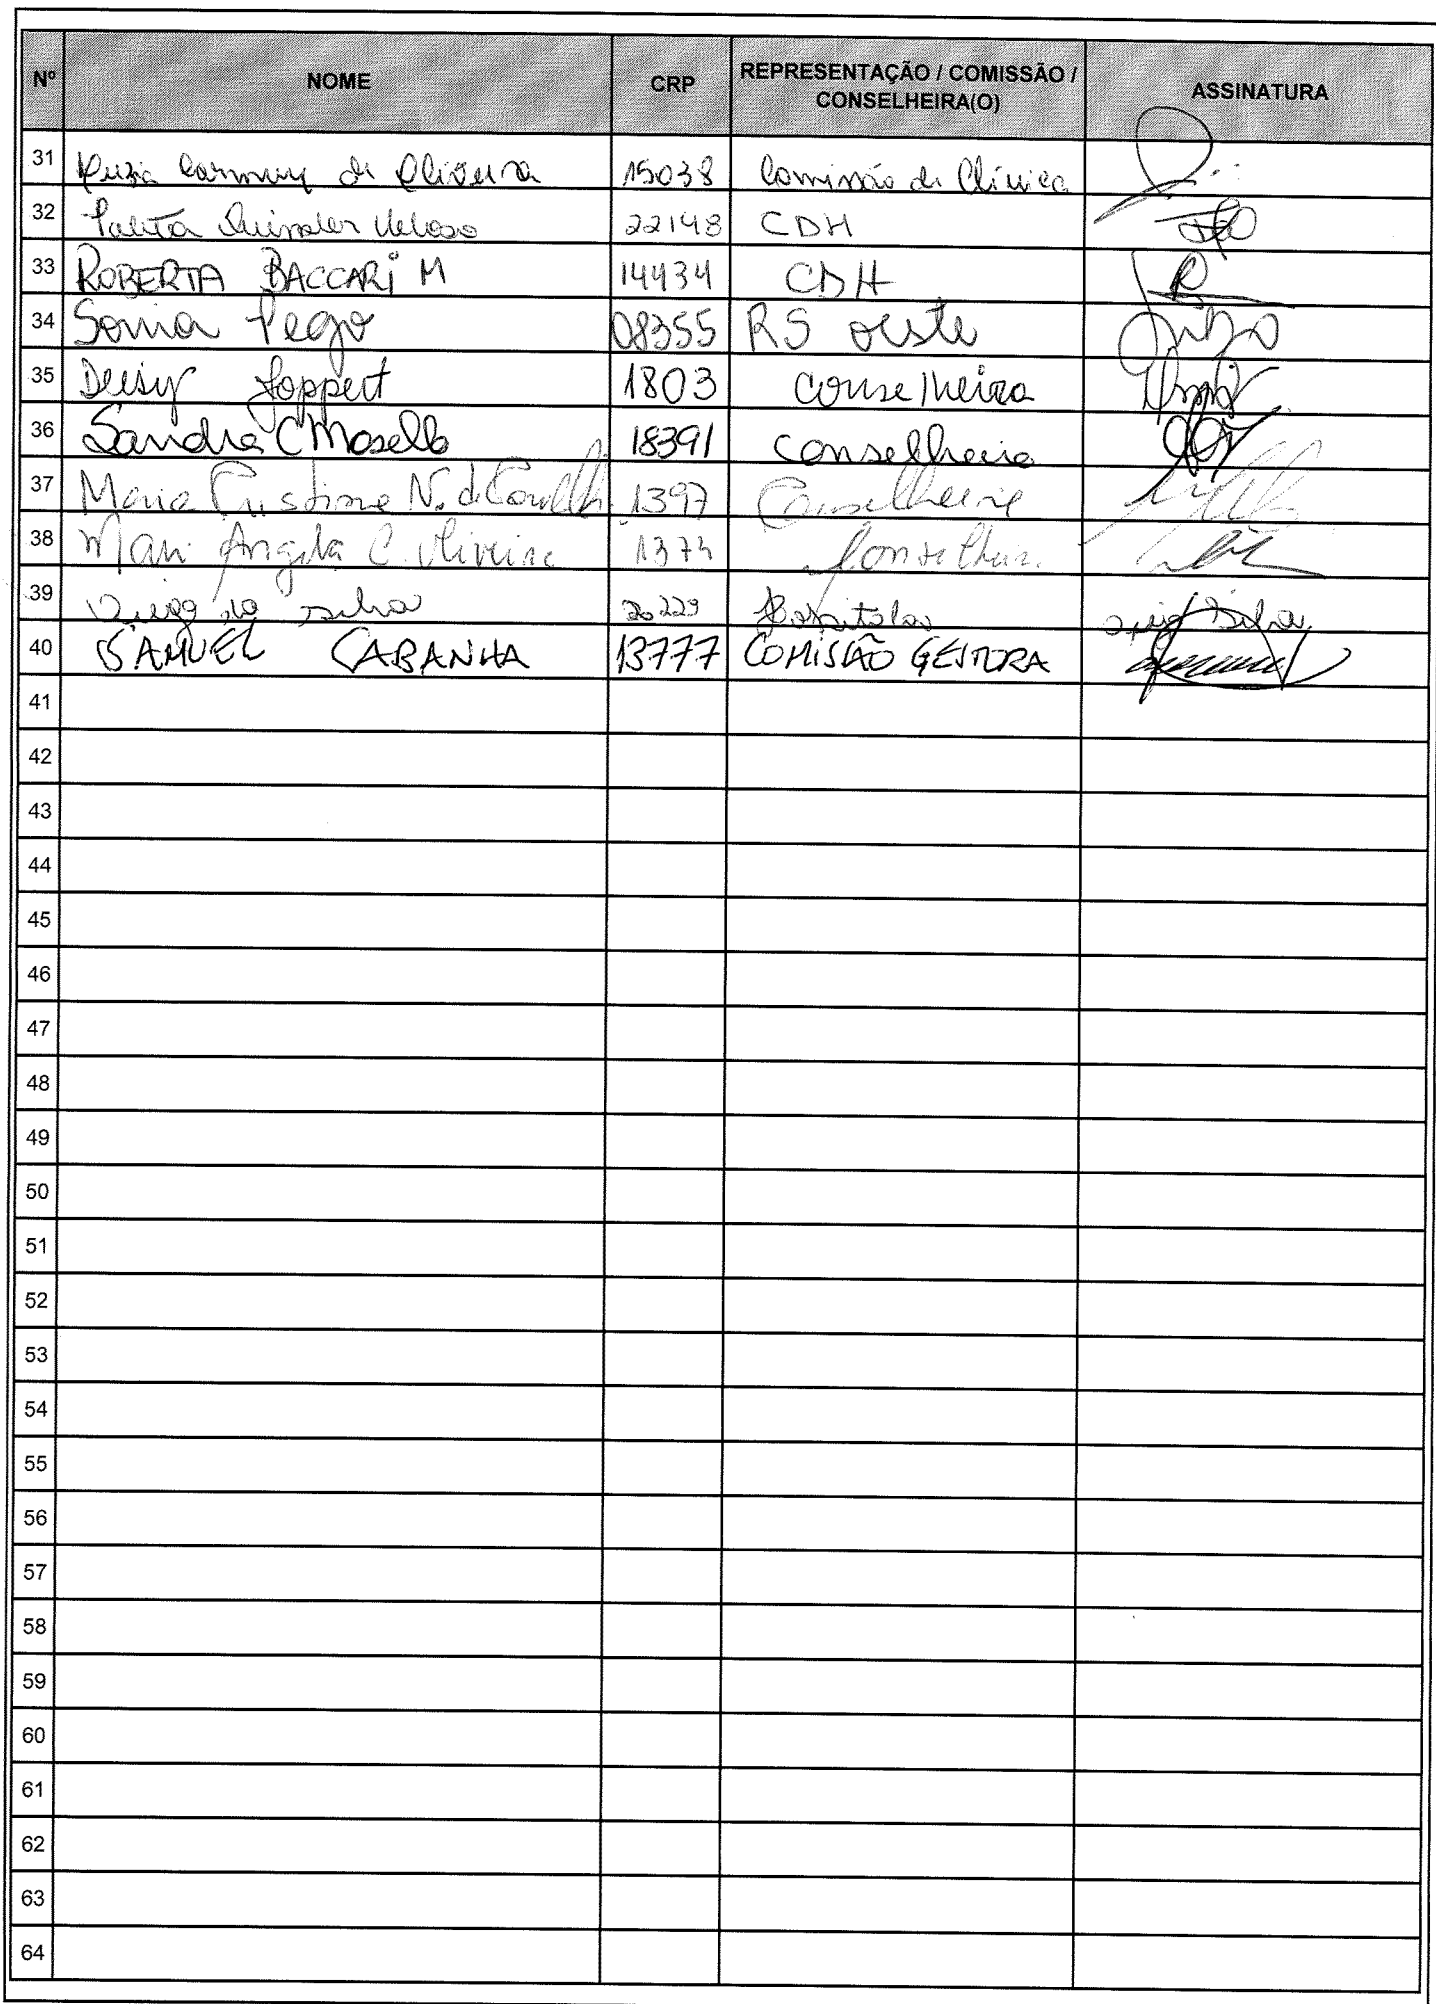 Nº NOME CRP REPRESENTAÇÃO / COMISSÃO / CONSELHEIRA(O) ASSINATURA
31 de Oliveira 15038 Comissão de Clínica
32 22148 CDH
33 ROBERTA BACCARI M 14434 CDH
34 Sonia Pego 08355 RS oeste
35 Deisy Joppert 1803 conselheira
36 Sandra C Mosello 18391 conselheira
37 Maria Cristina N. de Carvalho 1397 Conselheira
38 Mari Angela C. Oliveira 1374
39 da silva 20229 Hospitalar
40 SAMUEL CABANHA 13777 COMISSÃO GESTORA
41
42
43
44
45
46
47
48
49
50
51
52
53
54
55
56
57
58
59
60
61
62
63
64